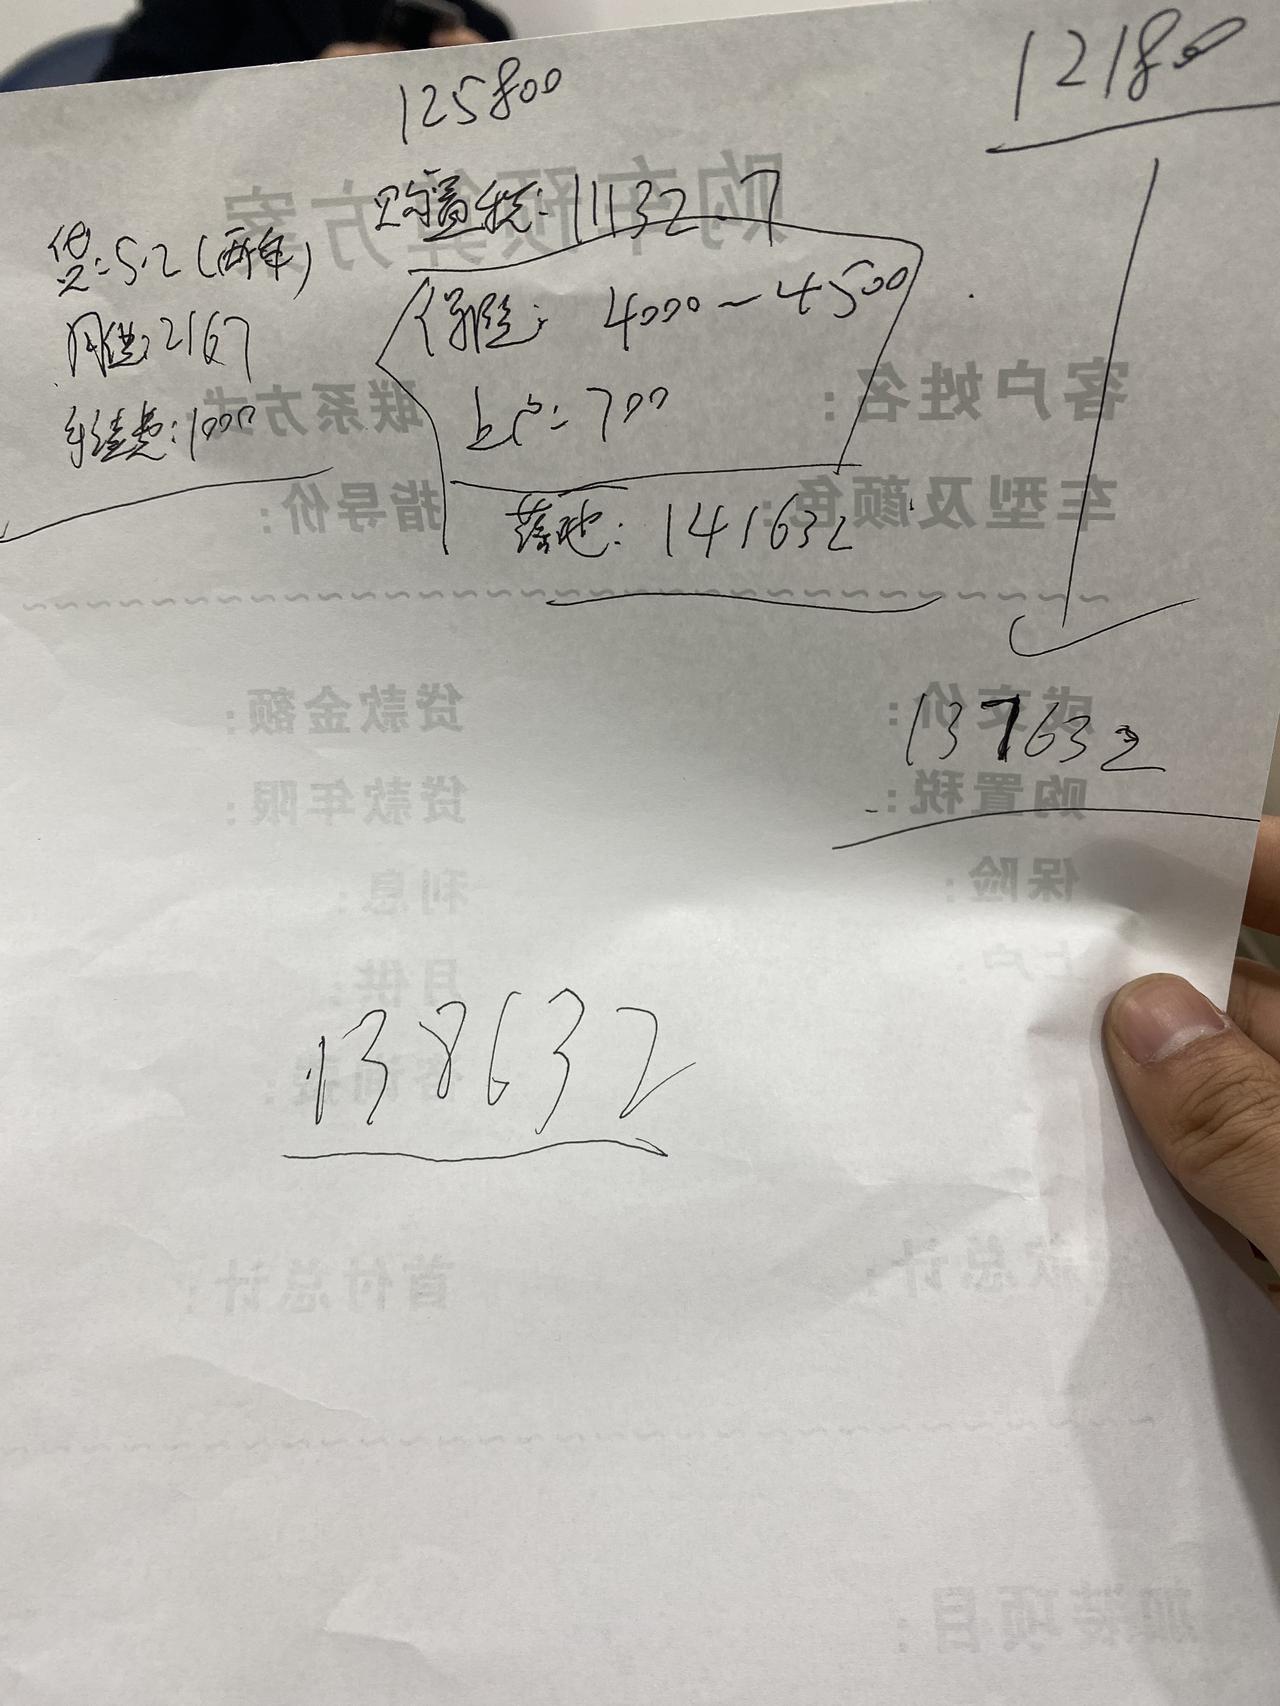 125800
12180
购车预算方案
购置税:11132.7
贷:5.2(两年)
保险: 4000~4500
月供:2167
客户姓名:
联系方式:
上户:700
手续费:1000
车型及颜色:
指导价:
落地: 141632
成交价:
贷款金额:
137632
购置税:
贷款年限:
保险:
利息:
上户:
月供:
138632
咨询费:
款总计:
首付总计:
加装项目: